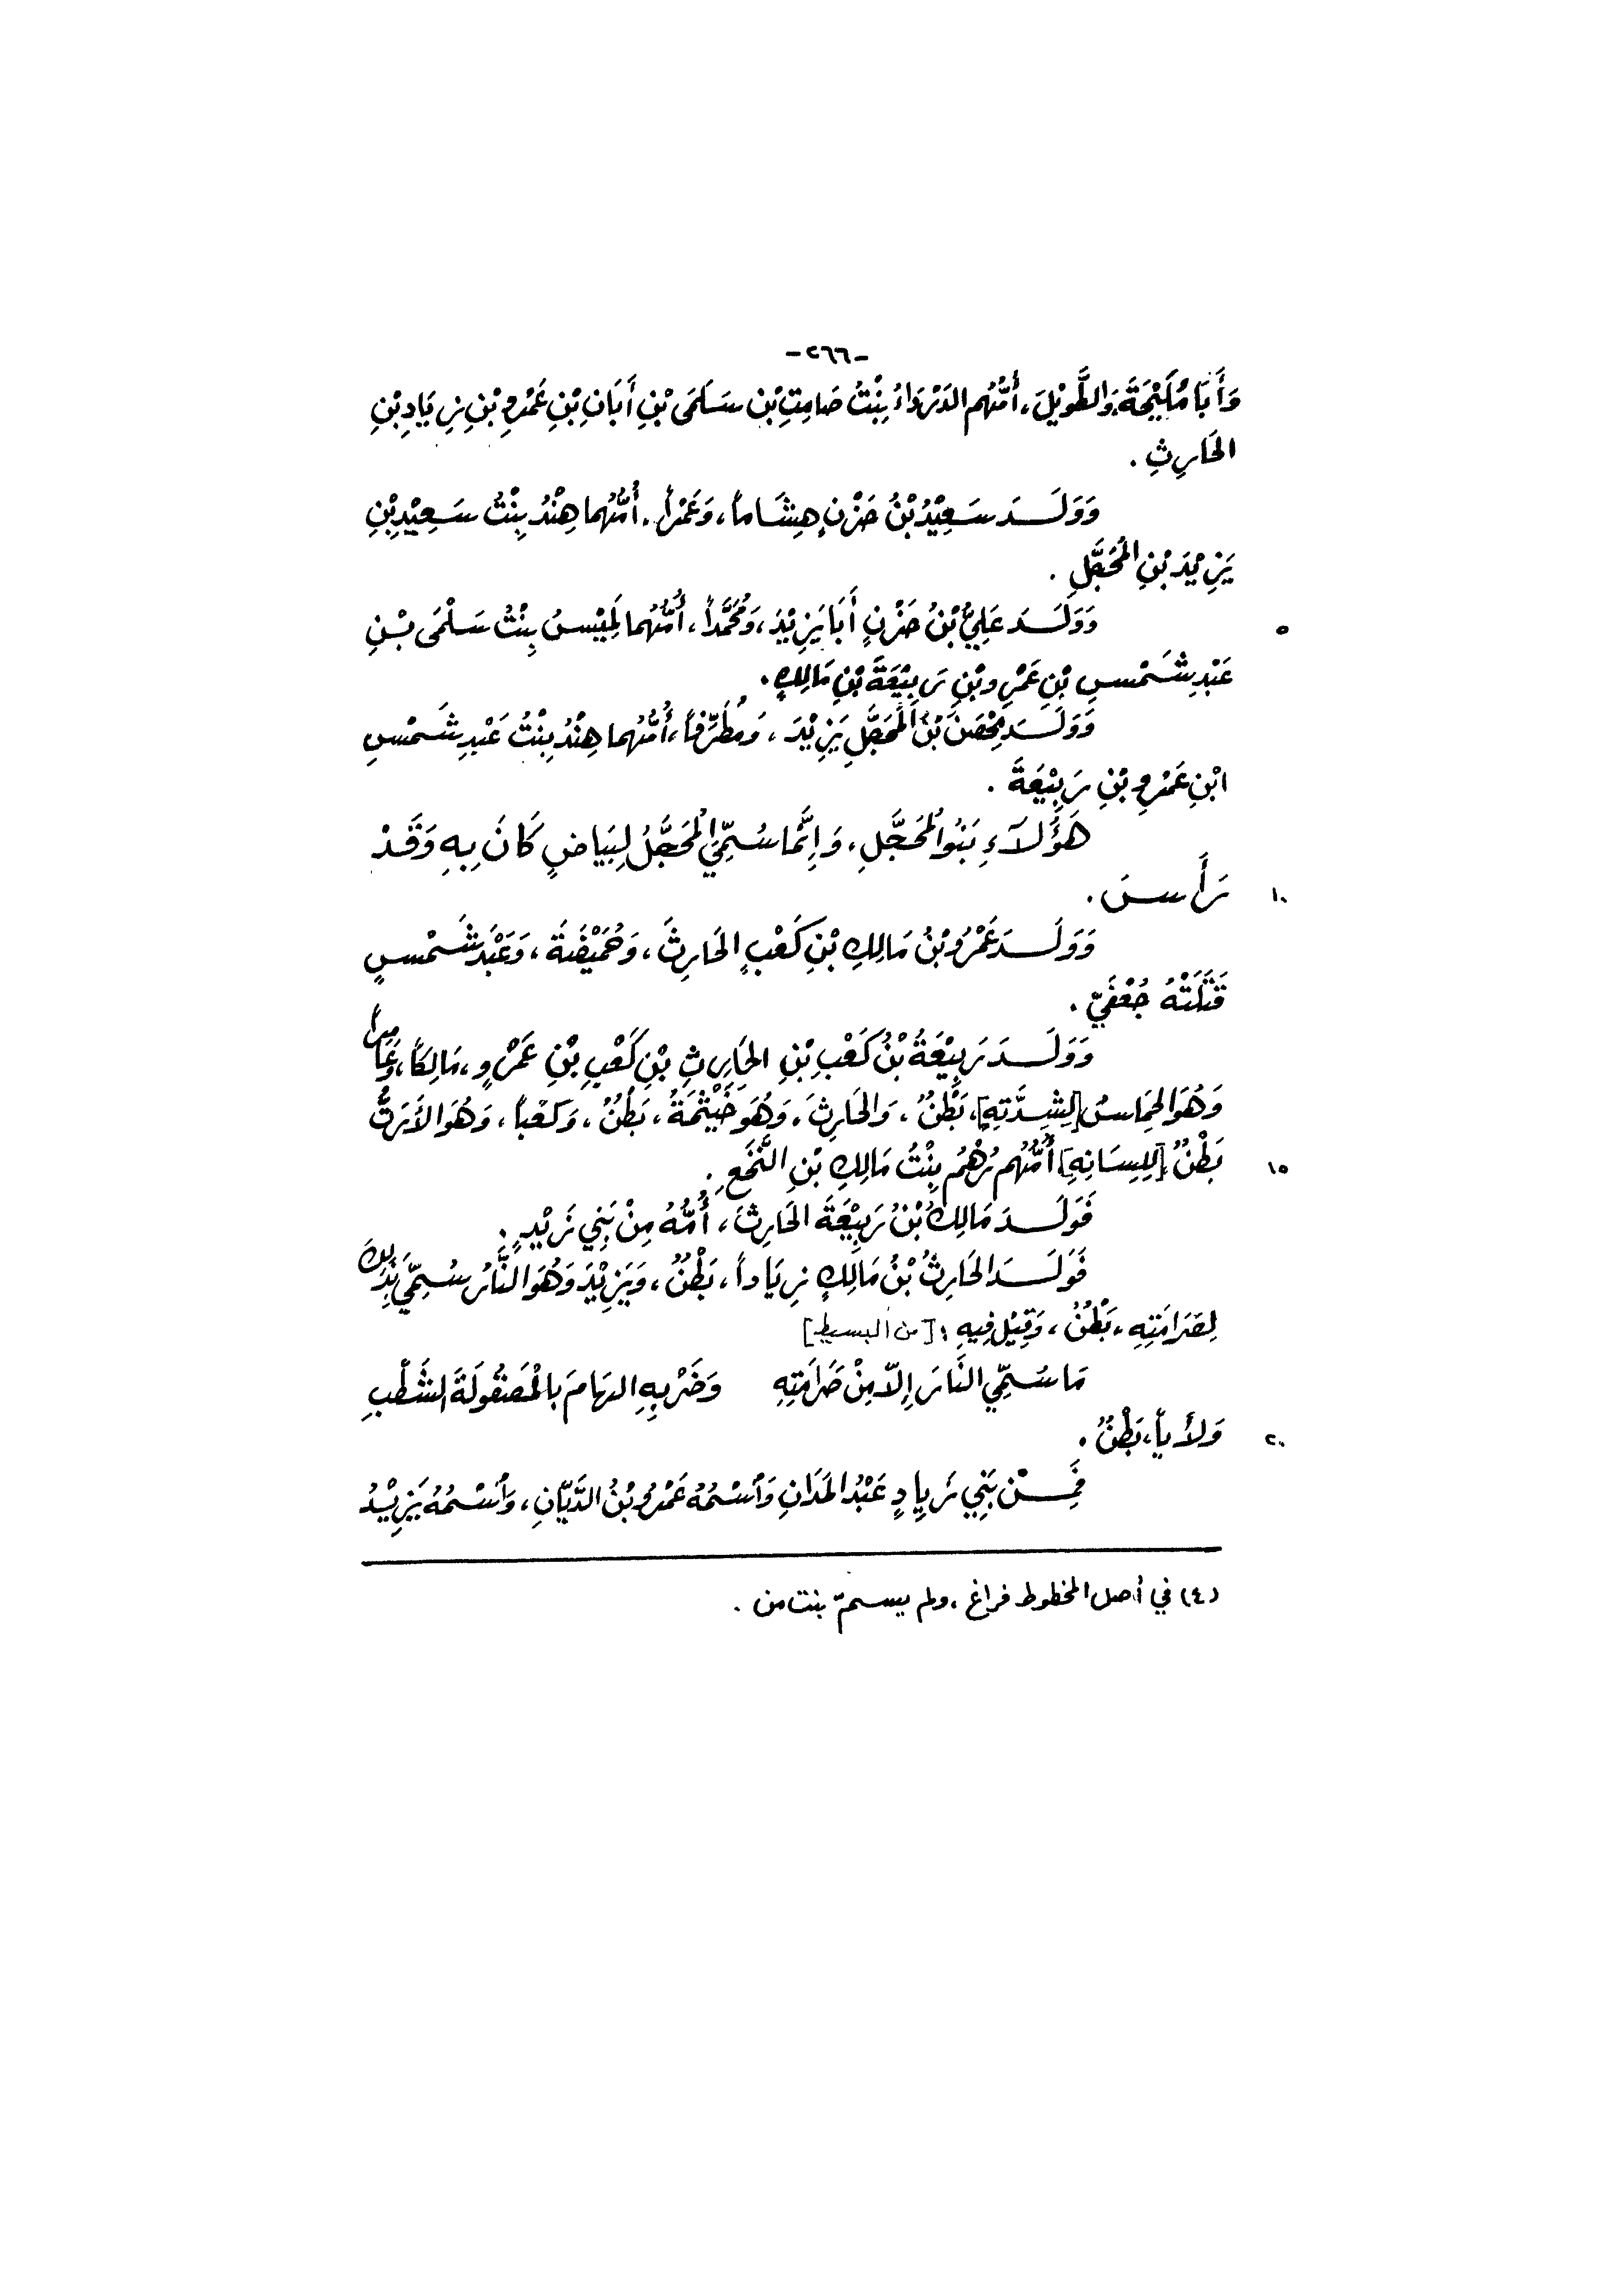 -٢٦٦-
وَأَبَا مُلَيْجَةَ، وَالطَّوِيْلَ، أُمُّهُم الدَّرْدَاءُ بِنْتُ صَامِتِ بْنِ سَلَمَى بْنِ أَبَانِ بْنِ عَمْرِو بْنِ زِيَادِ بْنِ
الحَارِثِ .
وَوَلَـدَ سَعِيْدُ بْنُ حَزْنٍ هِشَاماً، وَعَمْراً، أُمُّهُما هِنْدُ بِنْتُ سَعِيْدِ بْنِ
يَزِيْدَ بْنِ المُحَجَّلِ .
وَوَلَـدَ عَلِيُّ بْنُ حَزْنٍ أَبَا يَزِيْدَ، وَمُحَمَّداً، أُمُّهُما لَمِيْسُ بِنْتُ سَلْمَى بْـنِ
٥
عَبْدِ شَمْسِ بْنِ عَمْرِو بْنِ رَبِيْعَةَ بْنِ مَالِكٍ .
وَوَلَـدَ مِحْصَنُ بْنُ المُحَجَّلِ يَزِيْدَ، وَمُطَرِّفاً، أُمُّهُما هِنْدُ بِنْتُ عَبْدِ شَمْسِ
ابْنِ عَمْرِو بْنِ رَبِيْعَةَ .
هَؤُلَآءِ بَنُو المُحَجَّلِ، وَإِنَّمَا سُمِّيَ المُحَجَّلُ لِبَيَاضٍ كَانَ بِهِ وَقَدْ
رَأَسَ .
١٠
وَوَلَـدَ عَمْرُو بْنُ مَالِكِ بْنِ كَعْبٍ الحَارِثَ، وَحُمَيْضَةَ، وَعَبْدَ شَمْسٍ
قَتَلَتْهُ جُعْفَيّ .
وَوَلَـدَ رَبِيْعَةُ بْنُ كَعْبِ بْنِ الحَارِثِ بْنِ كَعْبِ بْنِ عَمْرٍو، مَالِكاً، وَعَامِراً
وَهُوَ الحِمَاسُ [لِشِدَّتِهِ]، بَطْنٌ، وَالحَارِثَ، وَهُوَ خَيْثَمَةُ، بَطْنٌ، وَكَعْباً، وَهُوَ الأَرَتُّ
بَطْنٌ [لِلِسَانِهِ] أُمُّهُم رُهْمُ بِنْتُ مَالِكِ بْنِ النَّخَعِ .
١٥
فَوَلَـدَ مَالِكُ بْنُ رَبِيْعَةَ الحَارِثَ، أُمُّهُ مِنْ بَنِي زَيْدٍ .
فَوَلَـدَ الحَارِثُ بْنُ مَالِكٍ زِيَاداً، بَطْنٌ، وَيَزِيْدَ وَهُوَ النَّارُ سُمِّيَ بِذَلِكَ
لِصَرَامَتِهِ، بَطْنٌ، وَقِيْلَ فِيهِ : [من البسيط]
مَا سُمِّيَ النَّارَ إِلاَّ مِنْ صَرَامَتِهِ وَضَرْبِهِ الهَامَ بِالْمَصْقُولَةِ الشَّطْبِ
وَلأْياً، بَطْنٌ .
٢٠
فَمِـنْ بَنِي زِيادٍ عَبْدُ المَدَانِ وَاسْمُهُ عَمْرُو بْنُ الدَّيَّانِ، وَاسْمُهُ يَزِيْدُ
(٤) في أصل المخطوط فراغ، ولم يسمّ بنت من .